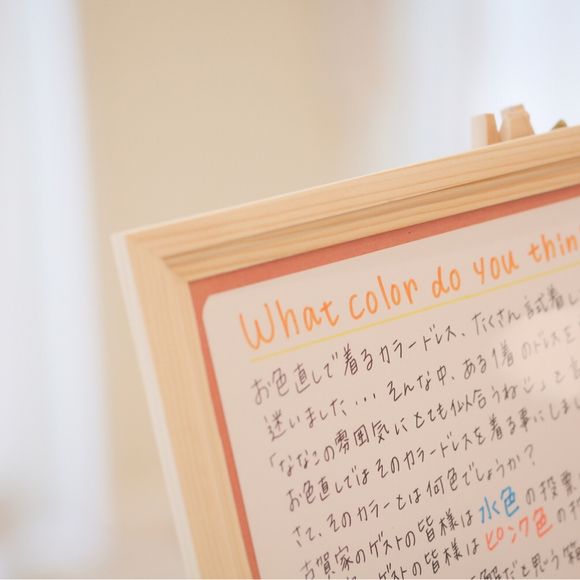 What color do you thin
お色直しで着るカラードレス、たくさん試着し
迷いました・・・そんな中、ある1着のドレスを
「ななこの雰囲気にとても似合うねじ」と
お色直しではそのカラードレスを着る事にしまし
さて、そのカラーとは何色でしょうか？
古賀家のゲストの皆様は水色の投票
ゲストの皆様はピンク色の投
正解だと思う箱